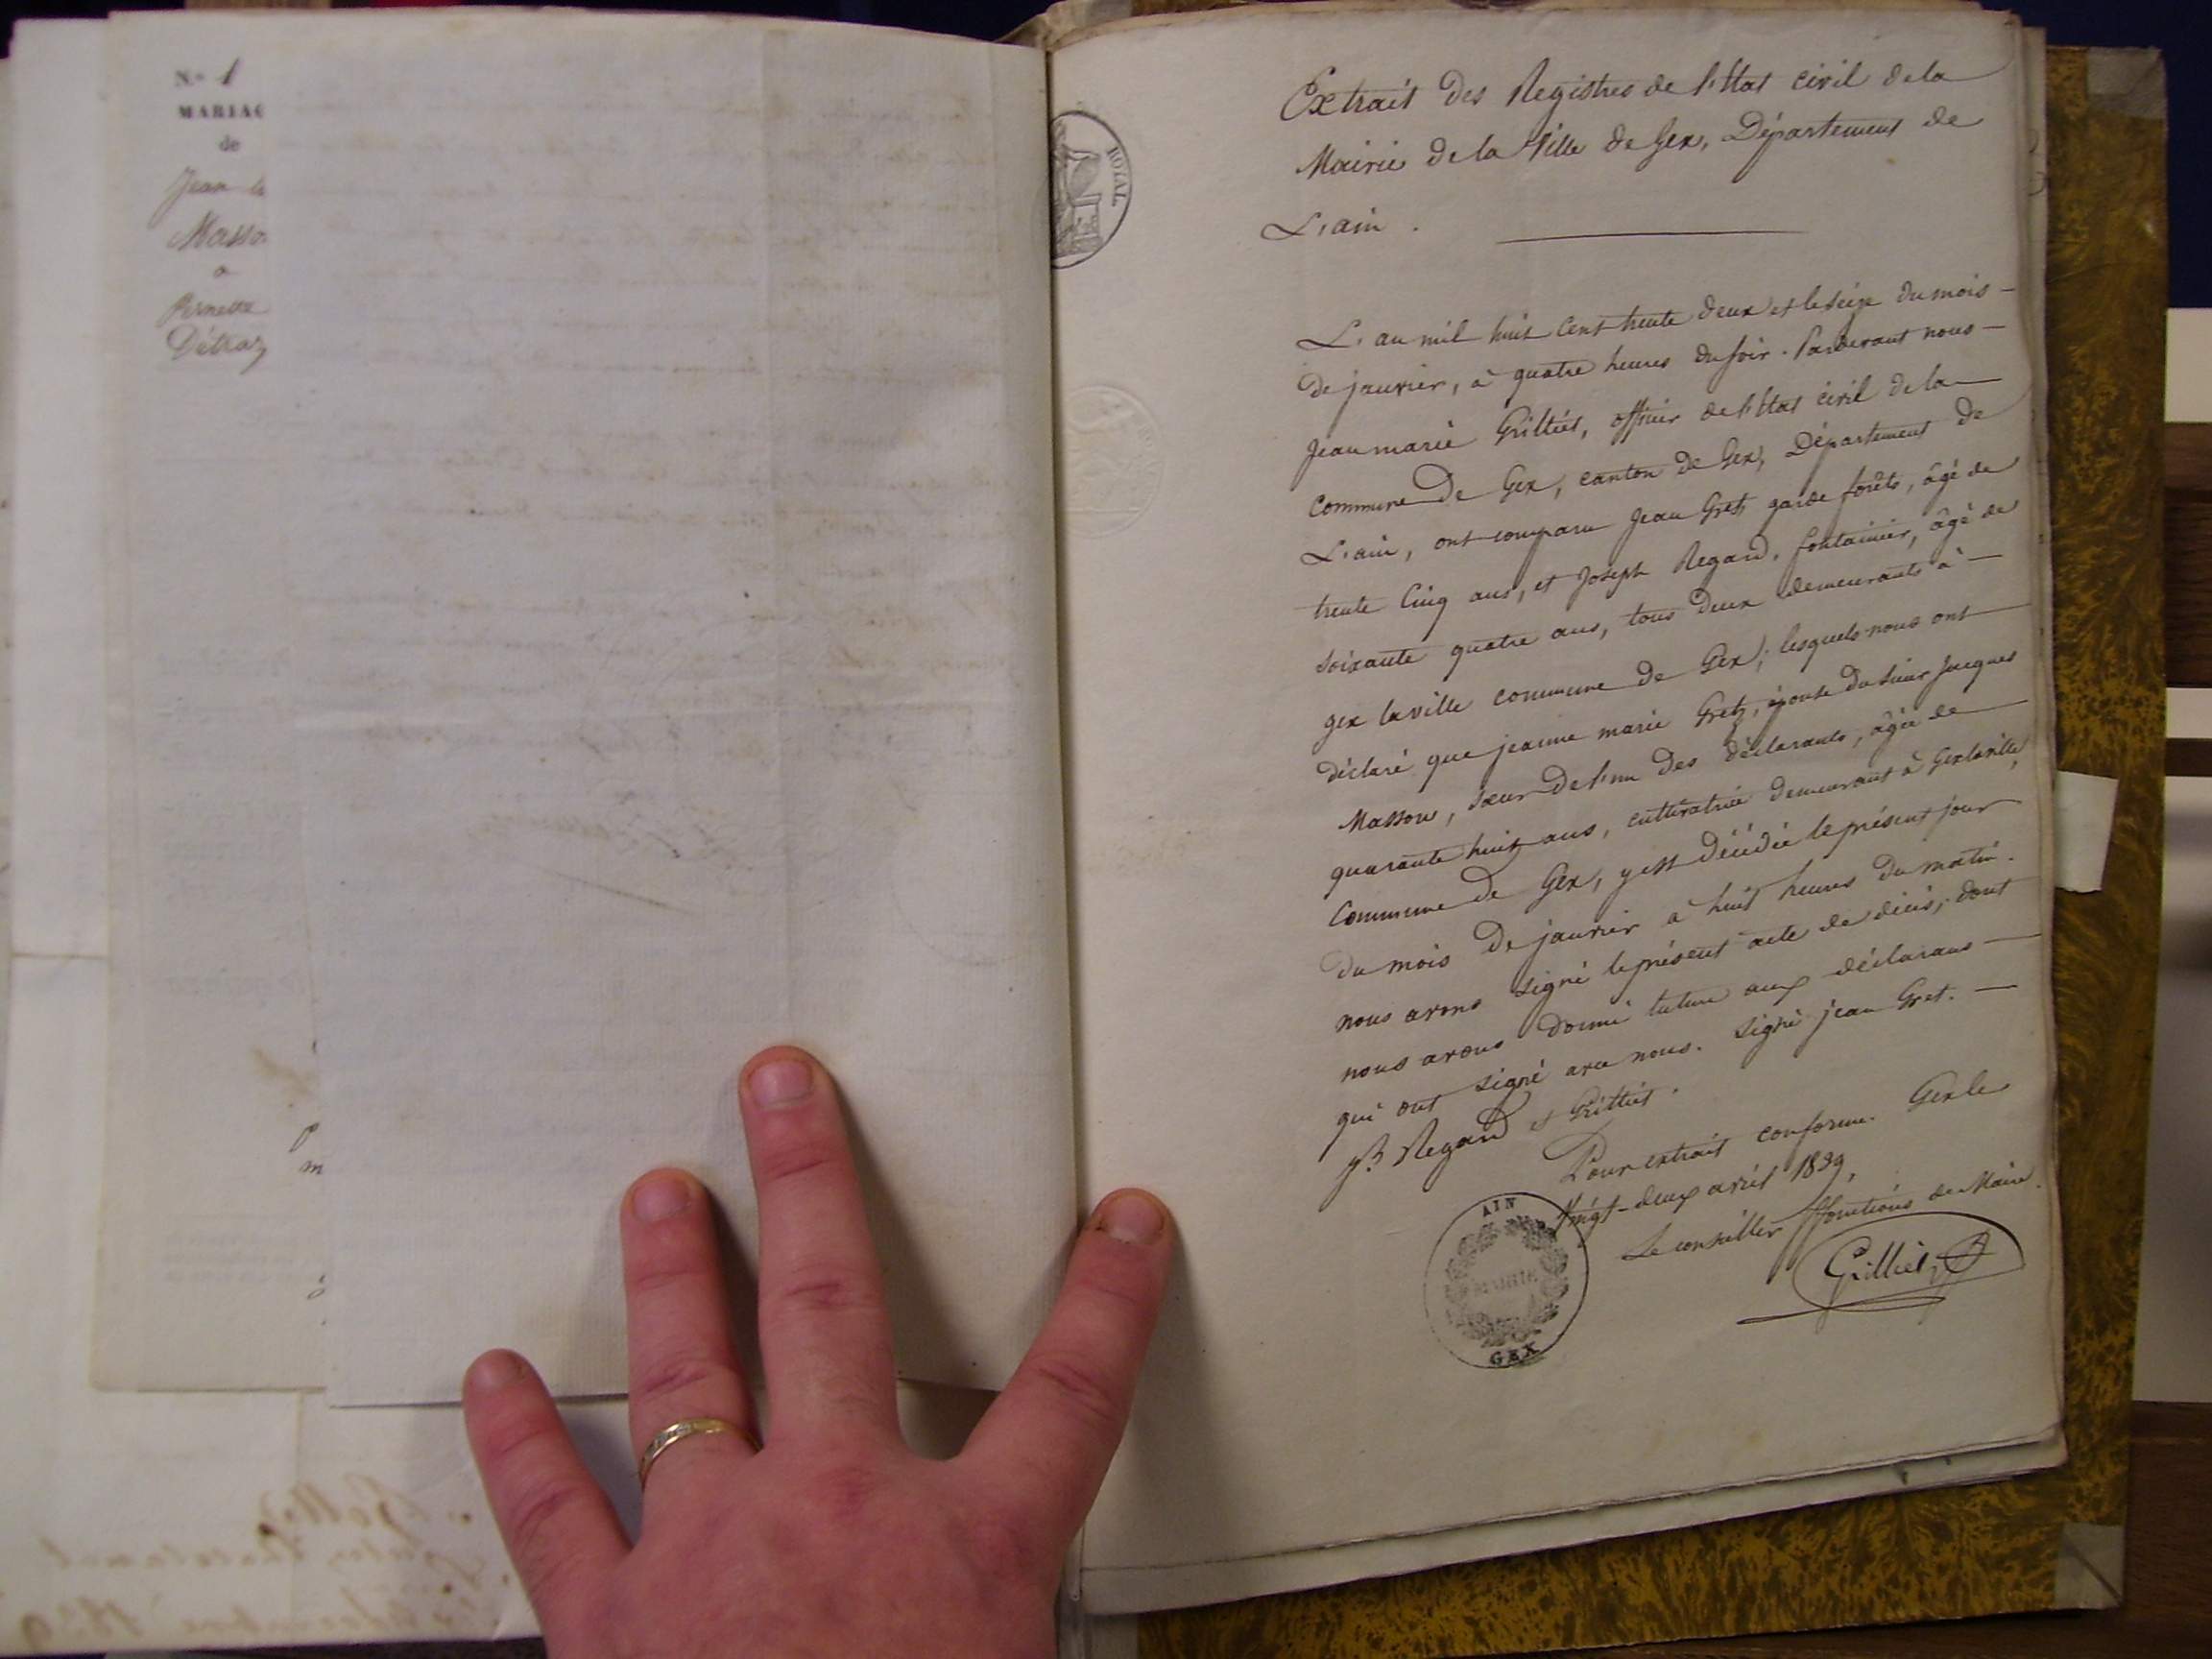 N.o 1
MARIAG
de
Jean
Masso
a
Pernette
Détraz
ROYAL
Extrait des Registres de l'Etat civil de la
Mairie de la Ville de Gex, Département de
L'ain.
L'an mil huit cent trente deux et le seize du mois
de janvier, à quatre heures du soir. Pardevant nous
Jean marie Grilliet, officier de l'Etat civil de la
commune de Gex, canton de Gex, Département de
L'ain, ont comparu Jean Gretz garde forêts, âgé de
trente cinq ans, et Joseph Regard, fontainier, âgé de
soixante quatre ans, tous deux demeurants à
gex la ville commune de Gex; lesquels nous ont
déclaré que jeanne marie Gretz, épouse du sieur Jacques
Masson, soeur de l'un des déclarants, âgée de
quarante huit ans, cultivatrice demeurant à Gex la ville,
commune de Gex, y est décédée le présent jour
du mois de janvier à huit heures du matin.
nous avons signé le présent acte de décès, dont
nous avons donné lecture aux déclarans
qui ont signé avec nous. signé jean Gret.
Regard et Grilliet.
Pour extrait conforme. Gex le
Vingt-deux avril 1839,
Le conseiller ffonctions de Maire.
Grilliet
AIN
MAIRIE
GEX